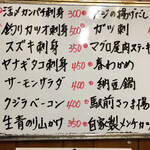 活〆カンパチ刺身 500
釣りカツオ刺身 500
スズキ刺身 350
ヤナギタコ刺身 450
サーモンサラダ 400
クジラベーコン 400
生青のり山かけ 350
アジの揚げだし
ガツ刺
マグロ尾肉ステーキ
春わかめ
納豆鍋
駅前さつま揚
自家製メンチカツ